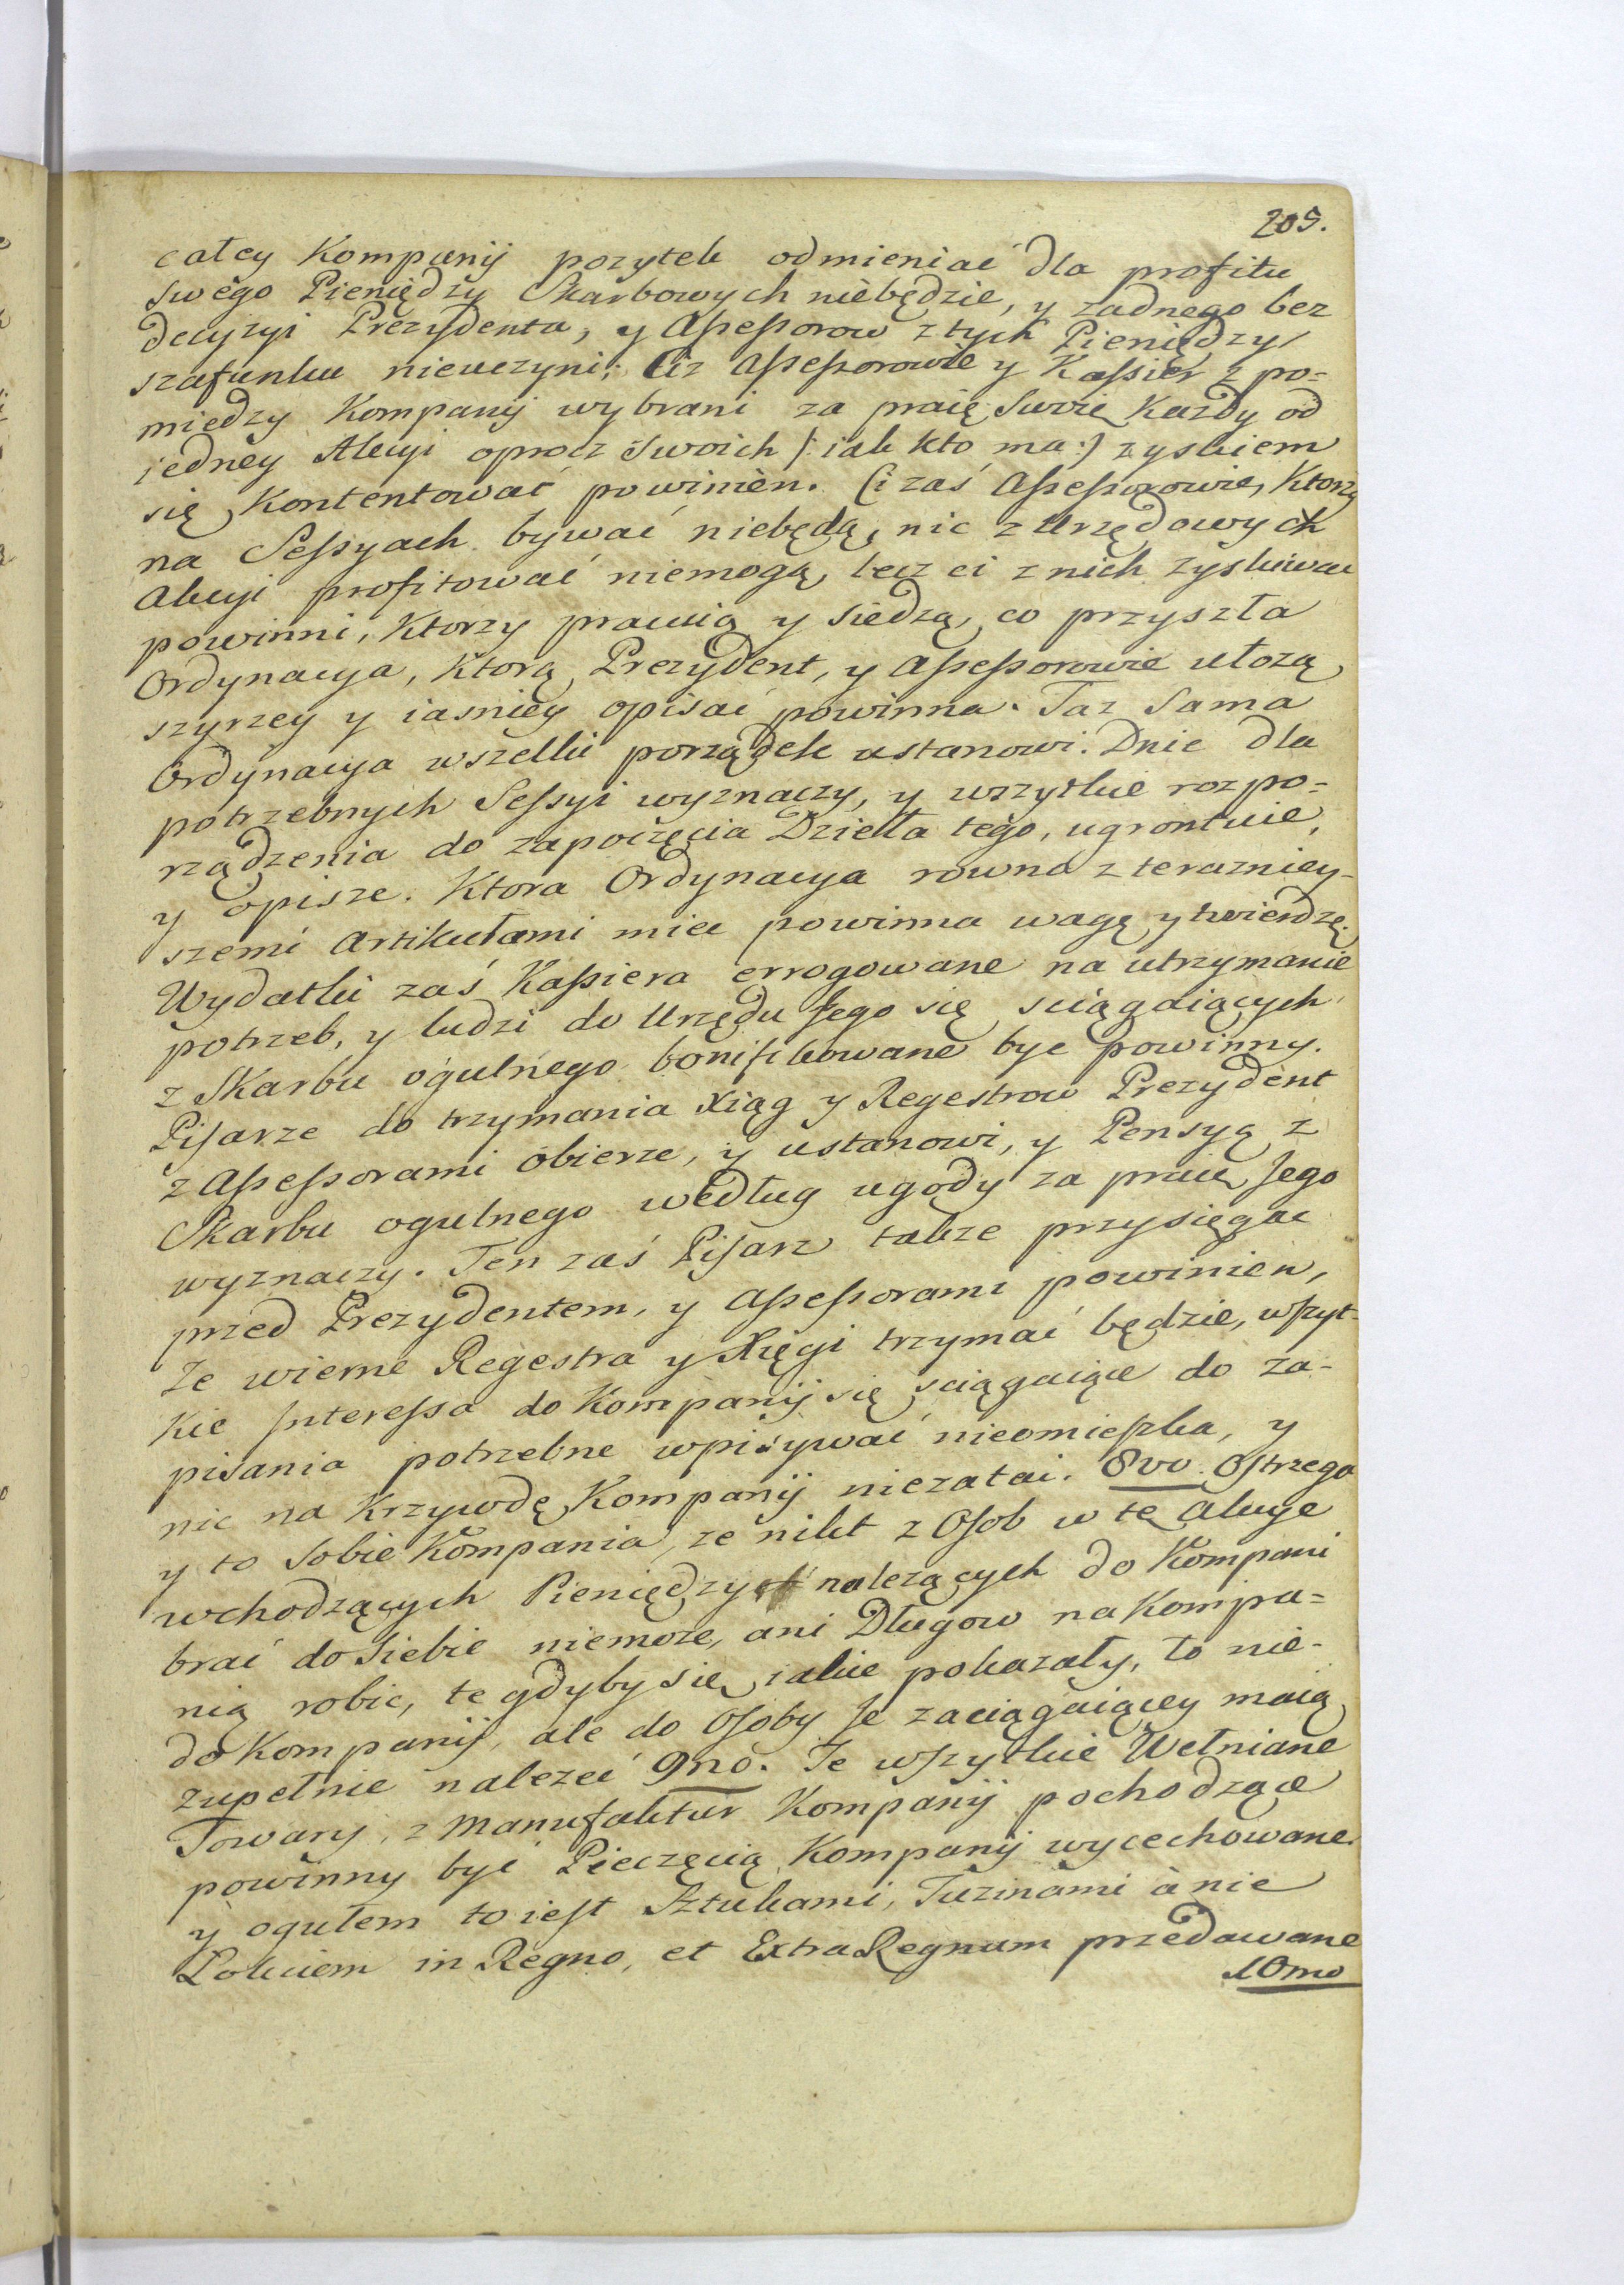 205.
całey Kompanij pozytek odmieniać dla profitu
swego Pieniędzy Skarbowych niebędzie, y zadnego bez
decyzyi Prezydenta, y Assessorow z tych Pieniędzy
szafunku nieuczyni; Ciz Assessorowie y Kassier z po=
miedzy Kompanij wybrani za pracę swoię Kazdy od
jedney Akcyi oprocz swoich /: iak kto ma :/ zyskiem
się Kontentować powinien. Ci zaś Assessorowie, Ktorzy
na Sessyach bywać niebędą, nic z Urzędowych
Akcyi profitować niemogą, lecz ci z nich zyskiwac
powinni, Ktorzy pracuią y siedzą, co przyszła
Ordynacya, Ktorą Prezydent, y Assessorowie ułozą,
szyrzey y iasniey opisać powinna. Taz sama
Ordynacya wszelki porządek ustanowi. Dnie dla
potrzebnych Sessyi wyznaczy, y wszytkie rozpo=
rządzenia do zapoczęcia Dzieła tego, ugrontuie,
y opisze. Ktora Ordynacya rowna z terazniey-
szemi Artikułami miec powinna wagę y twierdzę.
Wydatki zaś Kassiera errogowane na utrzymanie
potrzeb, y ludzi do Urzędu Jego się sciągaiących
z Skarbu ogulnego bonifikowane byc powinny.
Pisarze do trzymania Xiąg y Regestrow Prezydent
z Assessorami obierze, y ustanowi, y Pensyą z
Skarbu ogulnego według ugody za pracę Jego
wyznaczy. Ten zaś Pisarz takze przysięgac
przed Prezydentem, y Assessorami powinien,
Ze wierne Regestra y Xięgi trzymać będzie, wszyt-
kie Interessa do Kompanij się sciągaiące do za-
pisania potrzebne wpisywać nieomieszka, y
nic na Krzywdę Kompanij niezatai. 8vo. Ostrzega
y to sobie Kompania, ze nikt z Osob w tę Akcye
wchodzących Pieniędzy nalezących do Kompani
brać do siebie niemoze, ani Długow na Kompa=
nią robic, te gdyby się iakie pokazały, to nie-
do Kompanij, ale do Osoby Je zaciągaiącey maią
zupełnie nalezeć 9no. Te wszytkie Wełniane
Towary, z Manufaktur Kompanij pochodzące
powinny być Pieczęcią Kompanij wycechowane
y ogułem to iest Sztukami, Tuzinami à nie
Łokciem in Regno, et Extra Regnum przedawane
10mo